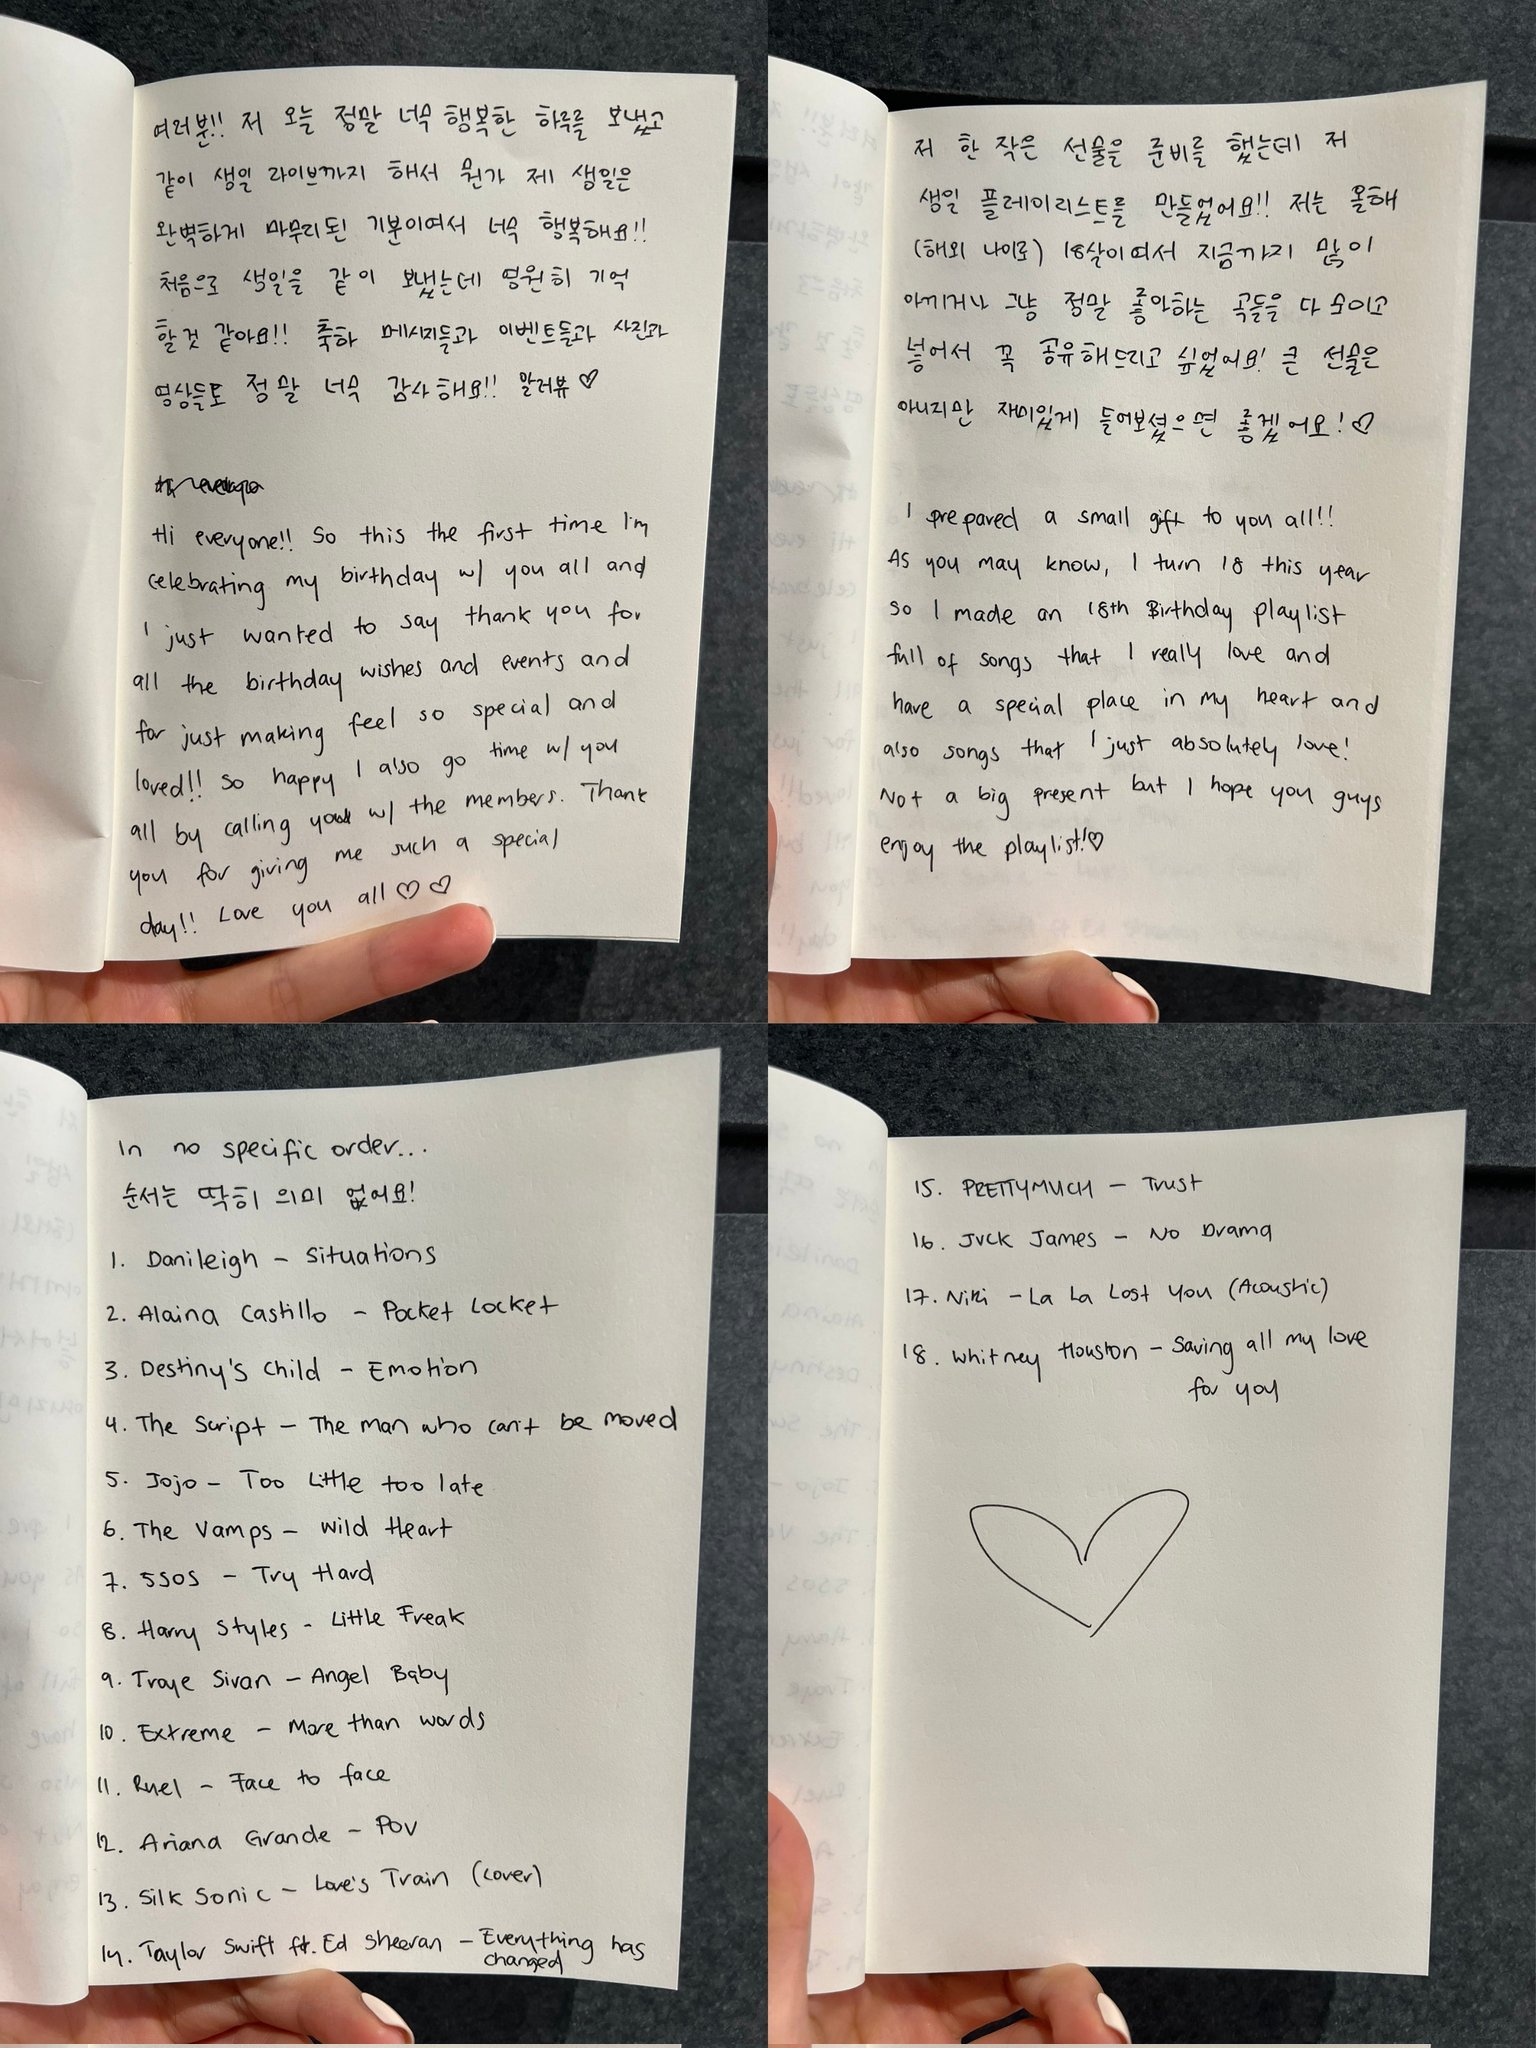 여러분!! 저 오늘 정말 너무 행복한 하루를 보냈고
같이 생일 라이브까지 해서 뭔가 제 생일은
완벽하게 마무리된 기분이여서 너무 행복해요!!
처음으로 생일을 같이 보냈는데 영원히 기억
할 것 같아요!! 축하 메시지들과 이벤트들과 사진과
영상들도 정말 너무 감사해요!! 알러뷰 ♡
Hi everyone!! So this the first time I'm
celebrating my birthday w/ you all and
I just wanted to say thank you for
all the birthday wishes and events and
for just making feel so special and
loved!! So happy I also go time w/ you
all by calling w/ the members. Thank
you for giving me such a special
day!! Love you all ♡ ♡
저 한 작은 선물을 준비를 했는데 저
생일 플레이리스트를 만들었어요!! 저는 올해
(해외 나이로) 18살이여서 지금까지 많이
아끼거나 그냥 정말 좋아하는 곡들을 다
넣어서 꼭 공유해드리고 싶었어요! 큰 선물은
아니지만 재미있게 들어보셨으면 좋겠어요! ♡
I prepared a small gift to you all!!
As you may know, I turn 18 this year
so I made an 18th Birthday playlist
full of songs that I really love and
have a special place in my heart and
also songs that I just absolutely love!
Not a big present but I hope you guys
enjoy the playlist! ♡
In no specific order...
순서는 딱히 의미 없어요!
1. Danileigh – Situations
2. Alaina Castillo – Pocket Locket
3. Destiny's Child – Emotion
4. The Script – The man who can't be moved
5. Jojo – Too Little too late
6. The Vamps – Wild Heart
7. 5SOS – Try Hard
8. Harry Styles - Little Freak
9. Troye Sivan – Angel Baby
10. Extreme – More than words
11. Ruel – Face to face
12. Ariana Grande – Pov
13. Silk Sonic – Love's Train (cover)
14. Taylor Swift ft. Ed Sheeran – Everything has
changed
15. PRETTYMUCH – Trust
16. JVCK James – No Drama
17. Niki – La La Lost You (Acoustic)
18. Whitney Houston – Saving all my love
for you